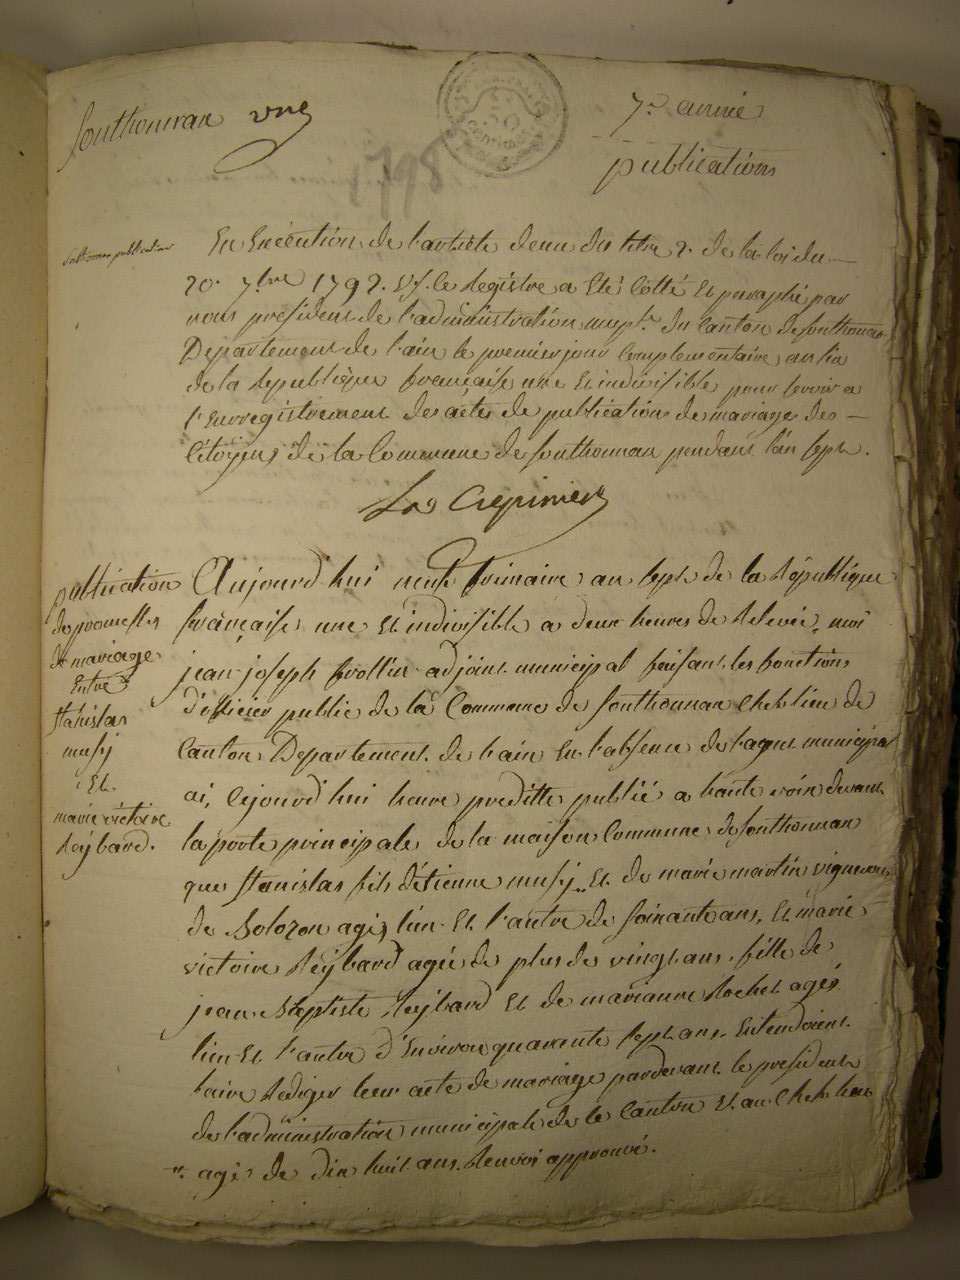 fonthonnax vne
7.e année
publications
1798
En Execution de l'article deux du titre 2. de la loi du
20. 7bre 1792. V.S. le Registre a Eté Cotté Et paraphé par
nous président de l'administration mupl. du Canton de fonthonnax
Departement de l'ain le premier jour Complementaire an six
de la Republique francaise une et indivisible pour servir a
l'Enregistrement des actes de publication de mariage des
Citoyens de la Commune de fonthonnax pendant l'an sept.
publication
de promesses
de mariage
Entre
stanislas
musy
Et
marie victoire
Reybard.
Aujourd'hui neuf frimaire an sept de la République
française une Et indivisible a deux heures de Relevée, moi
jean joseph adjoint municipal faisant les fonctions
d'officier public de la Commune de fonthonnax Chef lieu de
Canton Departement de l'ain En l'absence de l'agent municipal
ai, Cejourd'hui heure preditte publié a haute voix devant
la porte principale de la maison Commune de fonthonnax
que stanislas fils d'étienne musy Et de marie martin vignerons
de agés l'un Et l'autre de soixante ans, Et marie
victoire Reybard agée de plus de vingt ans, fille de
jean Baptiste Reybard Et de marianne Rochet agés
l'un Et l'autre d'Environ quarante sept ans, Entendoient
faire Rediger leur acte de mariage pardevant le président
de l'administration municipale de ce Canton Et au Chef lieu
agé de dix huit ans Renvoi approuvé.